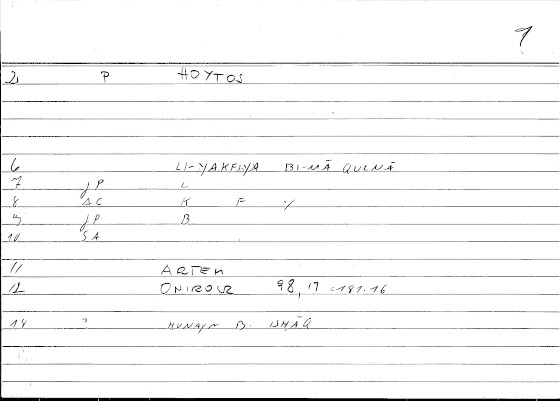 1
2 P HOYTOS
6 LI-YAKFIYA BI-MĀ QULNĀ
7 JP L
8 AC K F ./
9 JP B
10 SA
11 ARTEM
12 ONIROCR 98,17 = 191.16
14 ? HUNAYN B. ISHĀQ